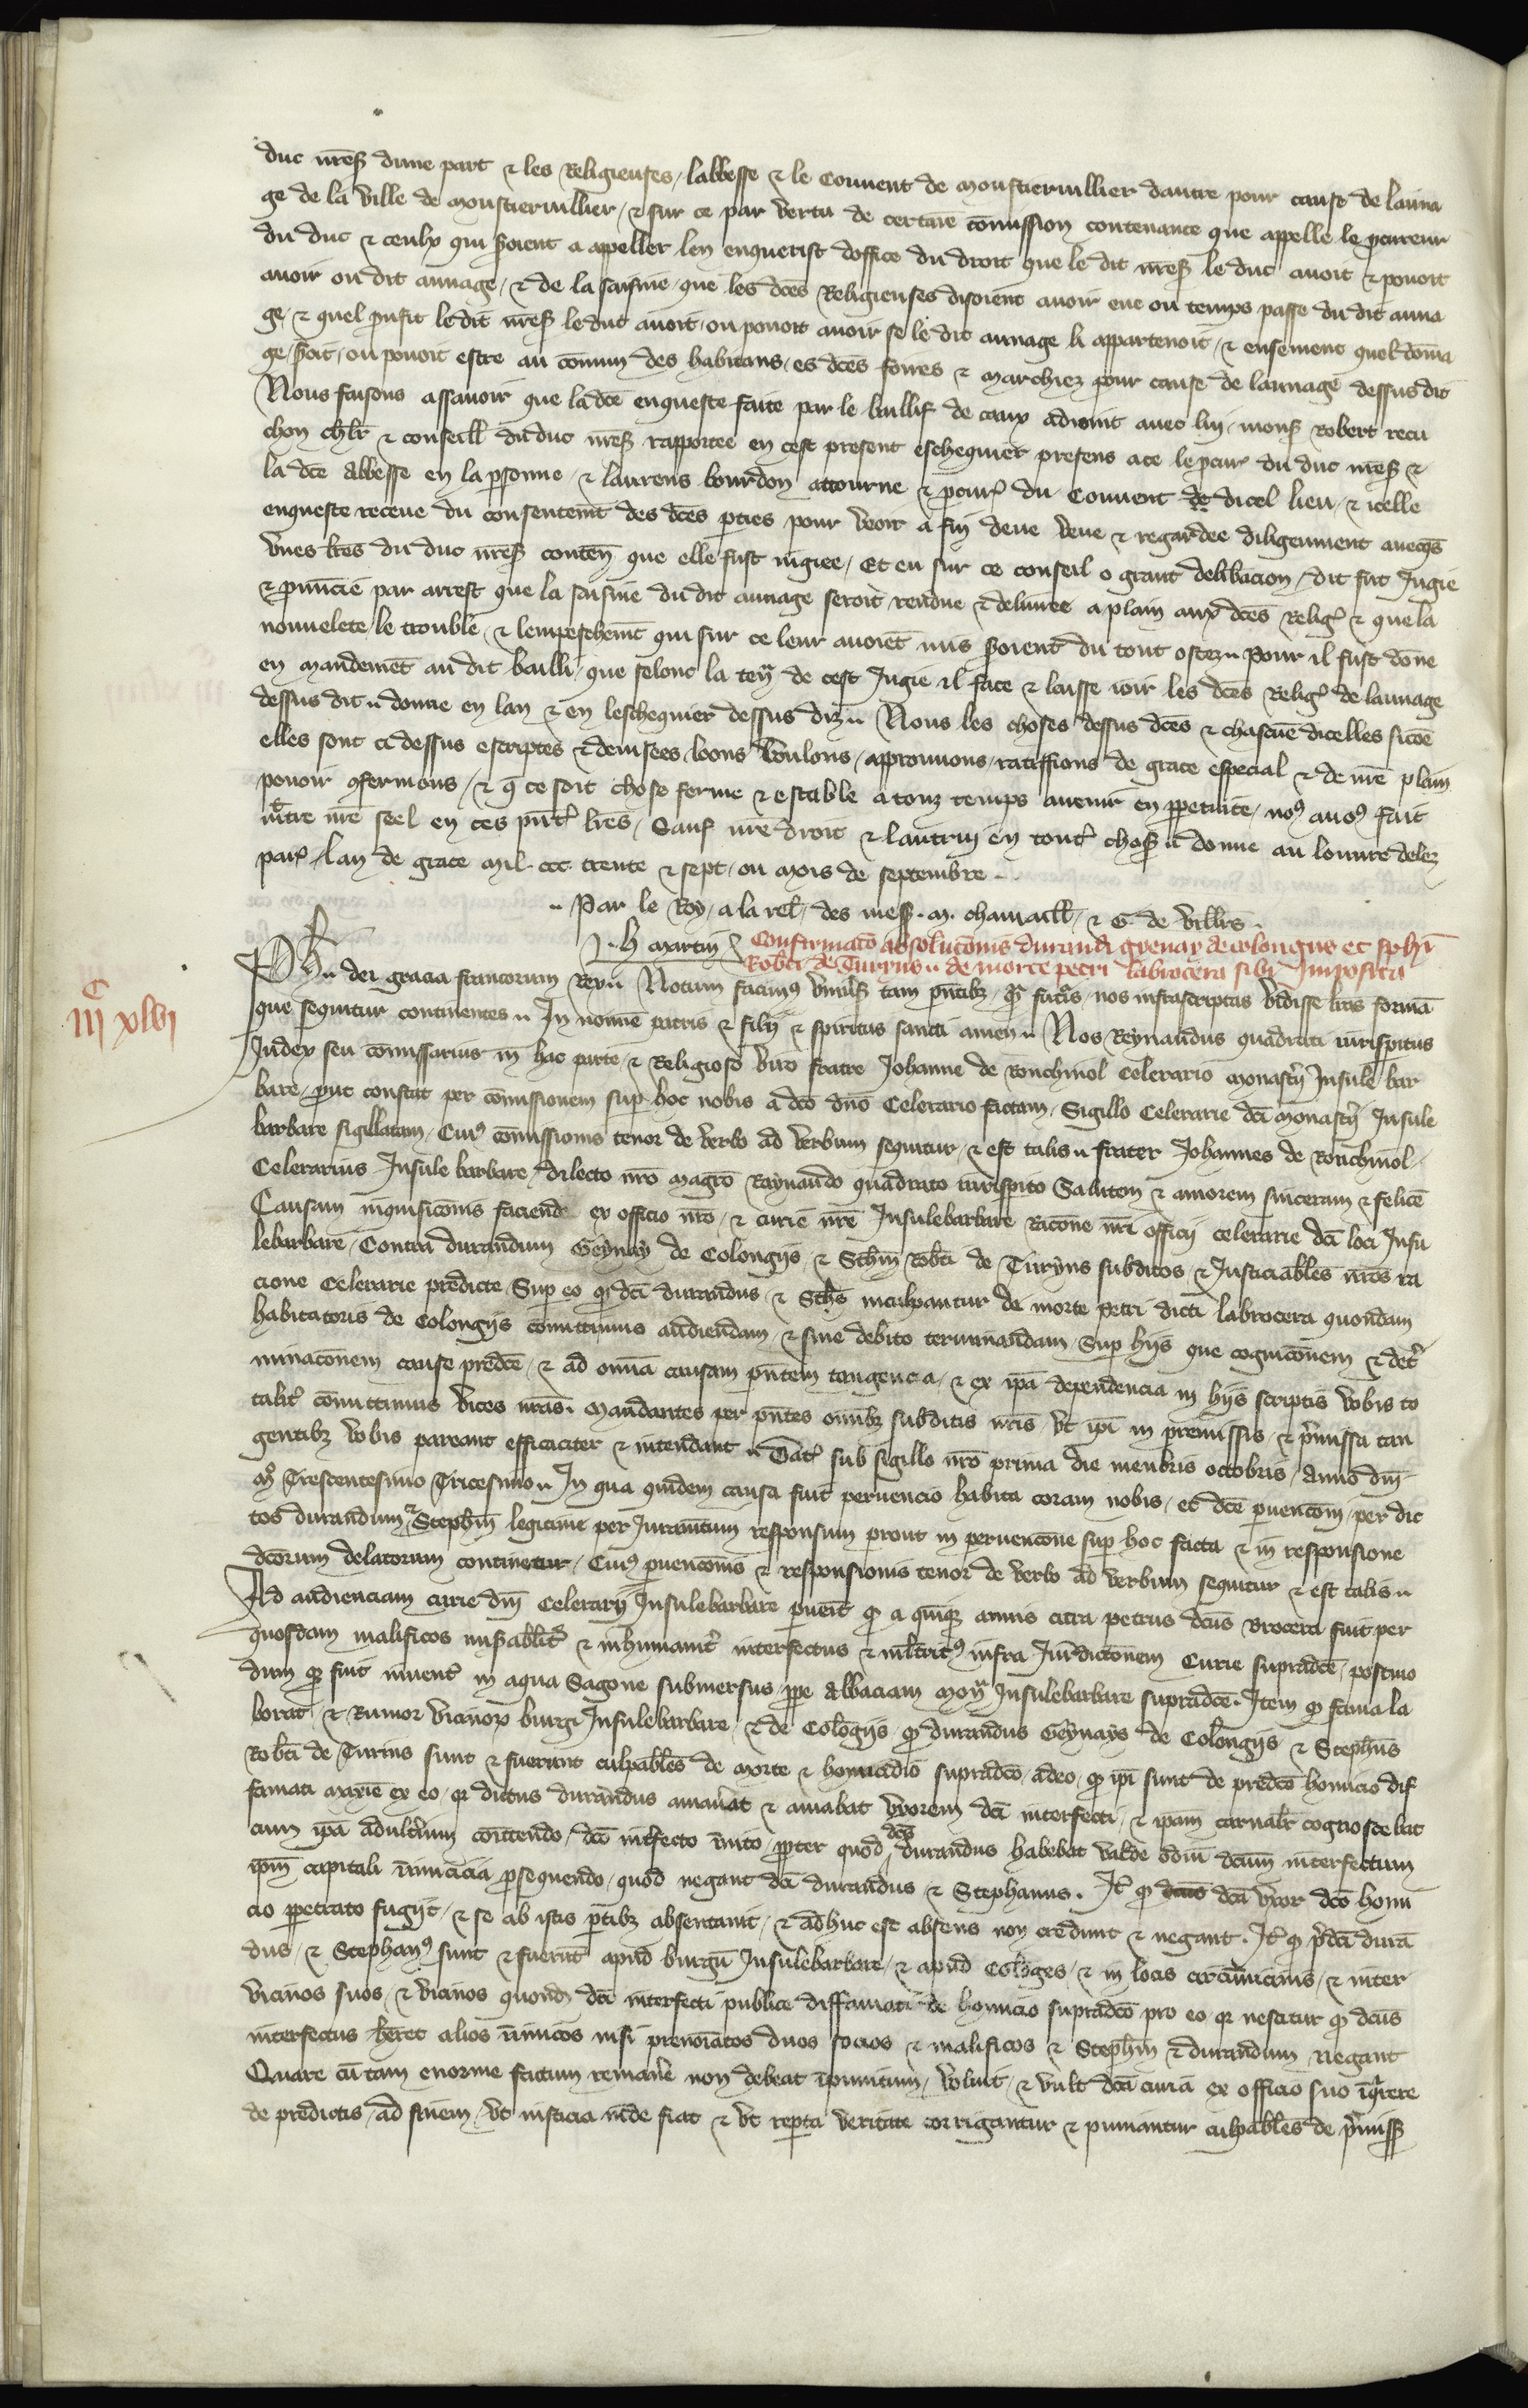 duc nres dune part & les Religieuses / labbesse & le Couuent de moustieruillier dautre pour cause de launa
ge de la ville de moustieruillier / & sur ce par vertu de certaine comission contenante que appelle le pcureur
du duc & ceulx qui seroient a appeller len enquerist doffice du droit que le dit mess le duc auoit & pouoit
auoir ou dit aunage / & de la saisine que les dces Religieuses disoient auoir eue ou temps passe du dit auna
ge / & quel prufit le dit mess le duc auoit / ou pouoit auoir se le dit aunage li appartenoit / & ensement quel doma
ge seroit / ou pouoit estre au comun des habitans / es dces foires & marchiez pour cause de launage dessus dit
Nous faisons assauoir que la dce enqueste faite par le baillif de caux adioint auec lui / mons Robert recu
chon chlr & conseill du duc nres rapportee en cest present eschequier presens a ce le pcur du duc nres &
la dce abbesse en la psonne / & laurens bourdon attourne & pcur du Couuent de dicel lieu / & icelle
enqueste receue du consentemt des dces pties pour veoir a fin deue veue & regardee diligenment auecqs
vnes lres du duc nres conten que elle fust iugiee / Et eu sur ce conseil o grant deliberacion / dit fut Iugie
& pnuncie par arrest que la saisine du dit aunage seroit rendue & deliuree a plain aux dces Relig & que la
nouuelete le trouble & lempeschemt qui sur ce leur auoiet mis seroient du tout ostez Pour il fust done
en mandemet au dit bailli / que selonc la ten de cest Iugie il face & laisse ioir les dces Relig de launage
dessus dit donne en lan & en leschequier dessus diz Nous les choses dessus dces & chascune dicelles sicoe
elles sont ci dessus escriptes & deuisees / loons voulons / approuuons / ratiffions de grace especial & de nre plain
pouoir 9fermons / & q ce soit chose ferme & estable a touz temps auenir en ppetuite / no9 auo9 fait
mtre nre seel en ces pnt lres / Sauf nre droit & lautrui en tout choses donne au louure delez
par / lan de grace mil ccc trente & sept / ou mois de septembre
Par le Roy / a la rel des mess . m. chamaill / & G. de villrs
h martin
Confirmato absolutonis durandi gyenay de colongns et sphi
Robti de Turyns de morte petri labrocera sibi Imposita
C
iii xlvi
Ph dei gracia francorum Rex Notum facim9 vniuls tam pntibz / q futis / nos infrascriptas vidisse lras forma
que sequitur continentes In nomie patris & filij & spiritus sancti amen Nos Reynaudus quadrati iurispitus
Iudex seu comissarius in hac parte & Religioso viro fratre Iohanne de Ronchiuol Celerario monastij Insule bar
bare / put constat per comissionem sup hoc nobis a dco dno Celerario factam / Sigillo Celerarie dci monastij Insule
barbare sigillatam / Cui9 comissionis tenor de verbo ad verbum sequitur / & est talis frater Iohannes de Ronchiuol
Celerarius Insule barbare / dilecto nro magro Raynaudo quadrato iurispito Salutem & amorem sinceram & felice
Causam inquisiconis faciend ex officio nro / & curie nre Insulebarbare Racone nri officij celerarie dci loci Insu
lebarbare / Contra durandum Geynay de Colongijs / & Sthm Robti de Turyns subditos & Iusticiables nros ra
cione Celerarie predicte / Sup eo q dci durandus & Sths inculpantur de morte petri dicti labrocera quondam
habitatoris de Colongijs comittimus audiendam / & fine debito terminandam / Sup hijs que cognicionem & det
minaconem cause predce / & ad omnia causam pntem tangencia / & ex ipa dependencia in hijs scriptis vobis to
talit comittimus vices nras. mandantes per pntes omibz subditis nris / vt ipi in premissis / & pmissa tan
gentibz vobis pareant efficaciter & intendant Dat sub sigillo nro prima die mensis octobris / anno dni
m Trescentesimo Tricesimo In qua quidem causa fuit peruencio habita coram nobis / et dce puencoi / per dic
tos durandum & Stephm legitime per Iuramtum responsum prout in peruencone sup hoc facta & in responsione
dcorum delatorum continetur / Cui9 puenconis & responsionis tenor de verbo ad verbum sequitur & est talis
Ad audienciam curie dni Celerarij Insulebarbare puenit q a quiqz annis citra petrus dcus Brocera fuit per
quosdam malificos misablit & inhumanit interfectus & mltrit9 infra Iuridictonem Curie supradce / postmo
dum q fuit inuent in aqua Sagone submersus / ppe abbaciam mon Insulebarbare supradce. Item q fama la
borat & Rumor vicinor burgi Insulebarbare / & de Cologijs / q durandus Geynays de Colongijs & Stephus
Robti de Turins sunt & fuerunt culpabiles de morte & homicidio supradco / adeo / q ipi sunt de predco homicio dif
famati maxie ex eo / q dictus durandus amauat & amabat vxorem dci interfecti / & ipam carnalr cognoscebat
cum ipa adulterium comttendo / dco intfecto inuito / ppter quod dcus durandus habebat valde odiu dcum interfectum
ipm capitali inimicicia psequendo / quod negant dci durandus & Stephanus. It q dcus dca vxor dco homi
cio ppetrato fugijt / & se ab istis ptibz absentauit / & adhuc est absens non credunt & negant. It q pdci dura
dus / & Stephan9 sunt & fuerut apud burgu Insulebarbare / & apud Cologes / & in locis circuuicinis / & inter
vicinos suos / & vicinos quond dci interfecti publice diffamati de homicio supradco pro eo q nescitur q dcus
interfectus heret alios inimicos nisi prenoiatos duos socios & malificos & Stephm & durandum negant
Quare cu tam enorme factum remane non debeat ipunitum / voluit / & vult dca curia ex officio suo iqrere
de predictis / ad finem / vt iusticia inde fiat & vt repta veritate corrigantur & puniantur culpabiles de pmiss